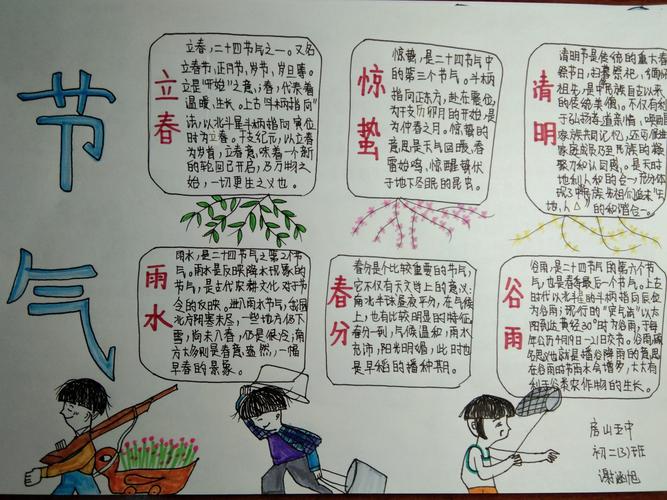 节气
立春
立春,二十四节气之一。又名
立春节、正月节、岁节、岁旦等。
立是"开始"之意;春,代表着
温暖、生长。上古"斗柄指向"
法,以北斗星斗柄指向寅位
时为立春。干支纪元,以立春
为岁首,立春意味着一个新
的轮回已开启,乃万物之
始,一切更生之义也。
惊蛰
惊蛰,是二十四节气中
的第三个节气。斗柄
指向正东方,赴在震位,
为干支历卯月的开始,是
为仲春之月。惊蛰的
意思是天气回暖、春
雷始鸣,惊醒蛰伏
于地下冬眠的昆虫。
清明
清明节是传统的重大春
祭节日,扫墓祭祀、缅怀
祖先,是中华民族自古以来
的优良传统,不仅有利
于弘扬孝道亲情、唤醒
家族共同记忆,还可促进
家族成员乃至民族的凝
聚力和认同感。是天时
地利人和的合一,充分体
现了中华民族先祖们追求"天、
地、人"的和谐合一。
雨水
雨水,是二十四节气之第2个节
气。雨水是反映降水现象的
节气,是古代农耕文化对于节
令的反映。进入雨水节气,我国
北方阴寒未尽,一些地方仍下
雪,尚未入春,仍是很冷;南
方大多则是春意盎然,一幅
早春的景象。
春分
春分是个比较重要的节气,
它不仅有天文学上的意义:
南北半球昼夜平分,在气候
上,也有比较明显的特征,
春分一到,气候温和,雨水
充沛,阳光明媚,此时也
是早稻的播种期。
谷雨
谷雨,是二十四节气的第六个节
气,也是春季最后一个节气。上古
时代以北斗星的斗柄指向辰位
为谷雨;现行的"定气法"以太
阳到达黄经30°时为谷雨,于每
年公历4月19日—21日交节。谷雨,顾
名思义也就是播谷降雨的意思
在谷雨时节雨水会增多,大大有
利于谷类农作物的生长。
房山五中
初二(3)班
谢涵旭